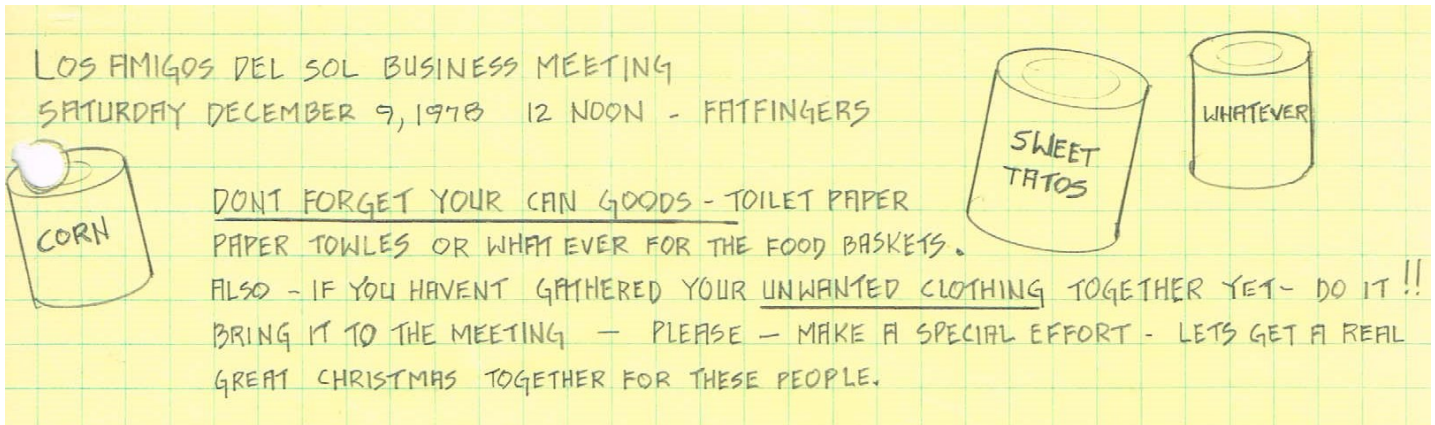 LOS AMIGOS DEL SOL BUSINESS MEETING
SATURDAY DECEMBER 9, 1978 12 NOON - FATFINGERS
CORN
SWEET
TATOS
WHATEVER
DONT FORGET YOUR CAN GOODS - TOILET PAPER
PAPER TOWLES OR WHAT EVER FOR THE FOOD BASKETS.
ALSO - IF YOU HAVENT GATHERED YOUR UNWANTED CLOTHING TOGETHER YET - DO IT!!
BRING IT TO THE MEETING — PLEASE — MAKE A SPECIAL EFFORT - LETS GET A REAL
GREAT CHRISTMAS TOGETHER FOR THESE PEOPLE.